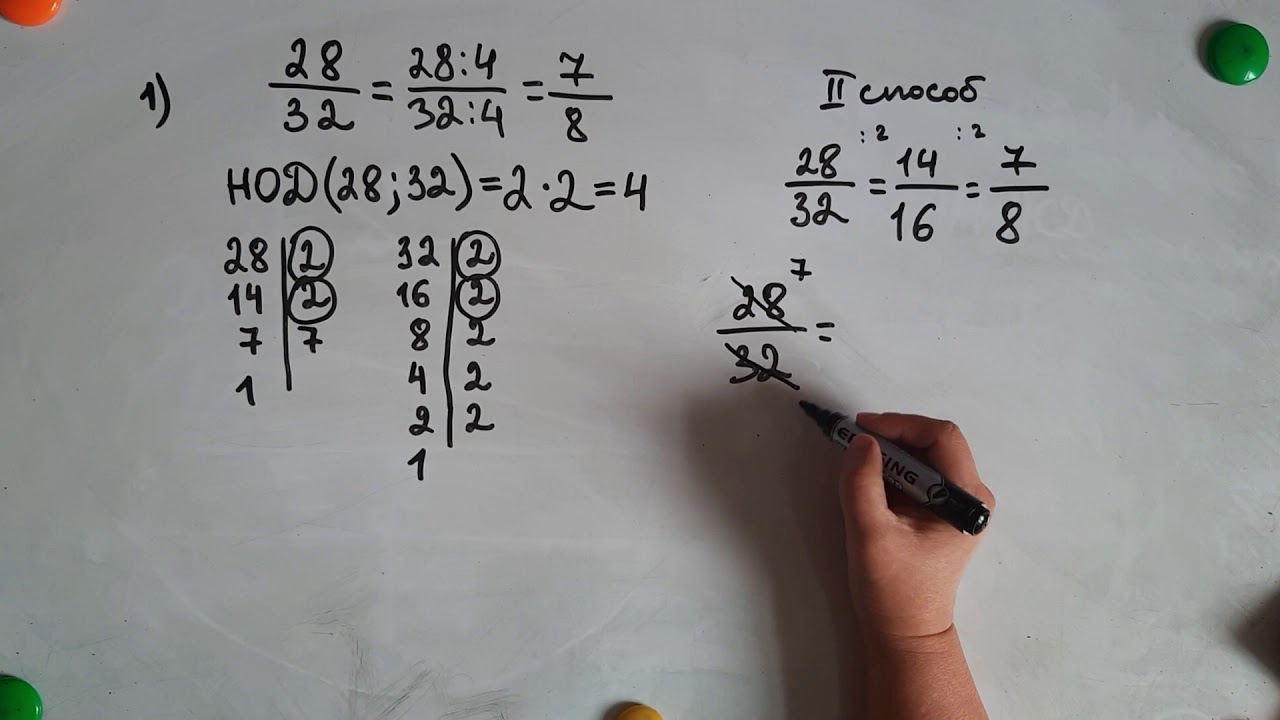 1) 28/32 = 28:4/32:4 = 7/8
НОД(28;32)=2·2=4
28 | 2
14 | 2
7 | 7
1
32 | 2
16 | 2
8 | 2
4 | 2
2 | 2
1
II способ
28/32 :2 = 14/16 :2 = 7/8
28/32 = 7